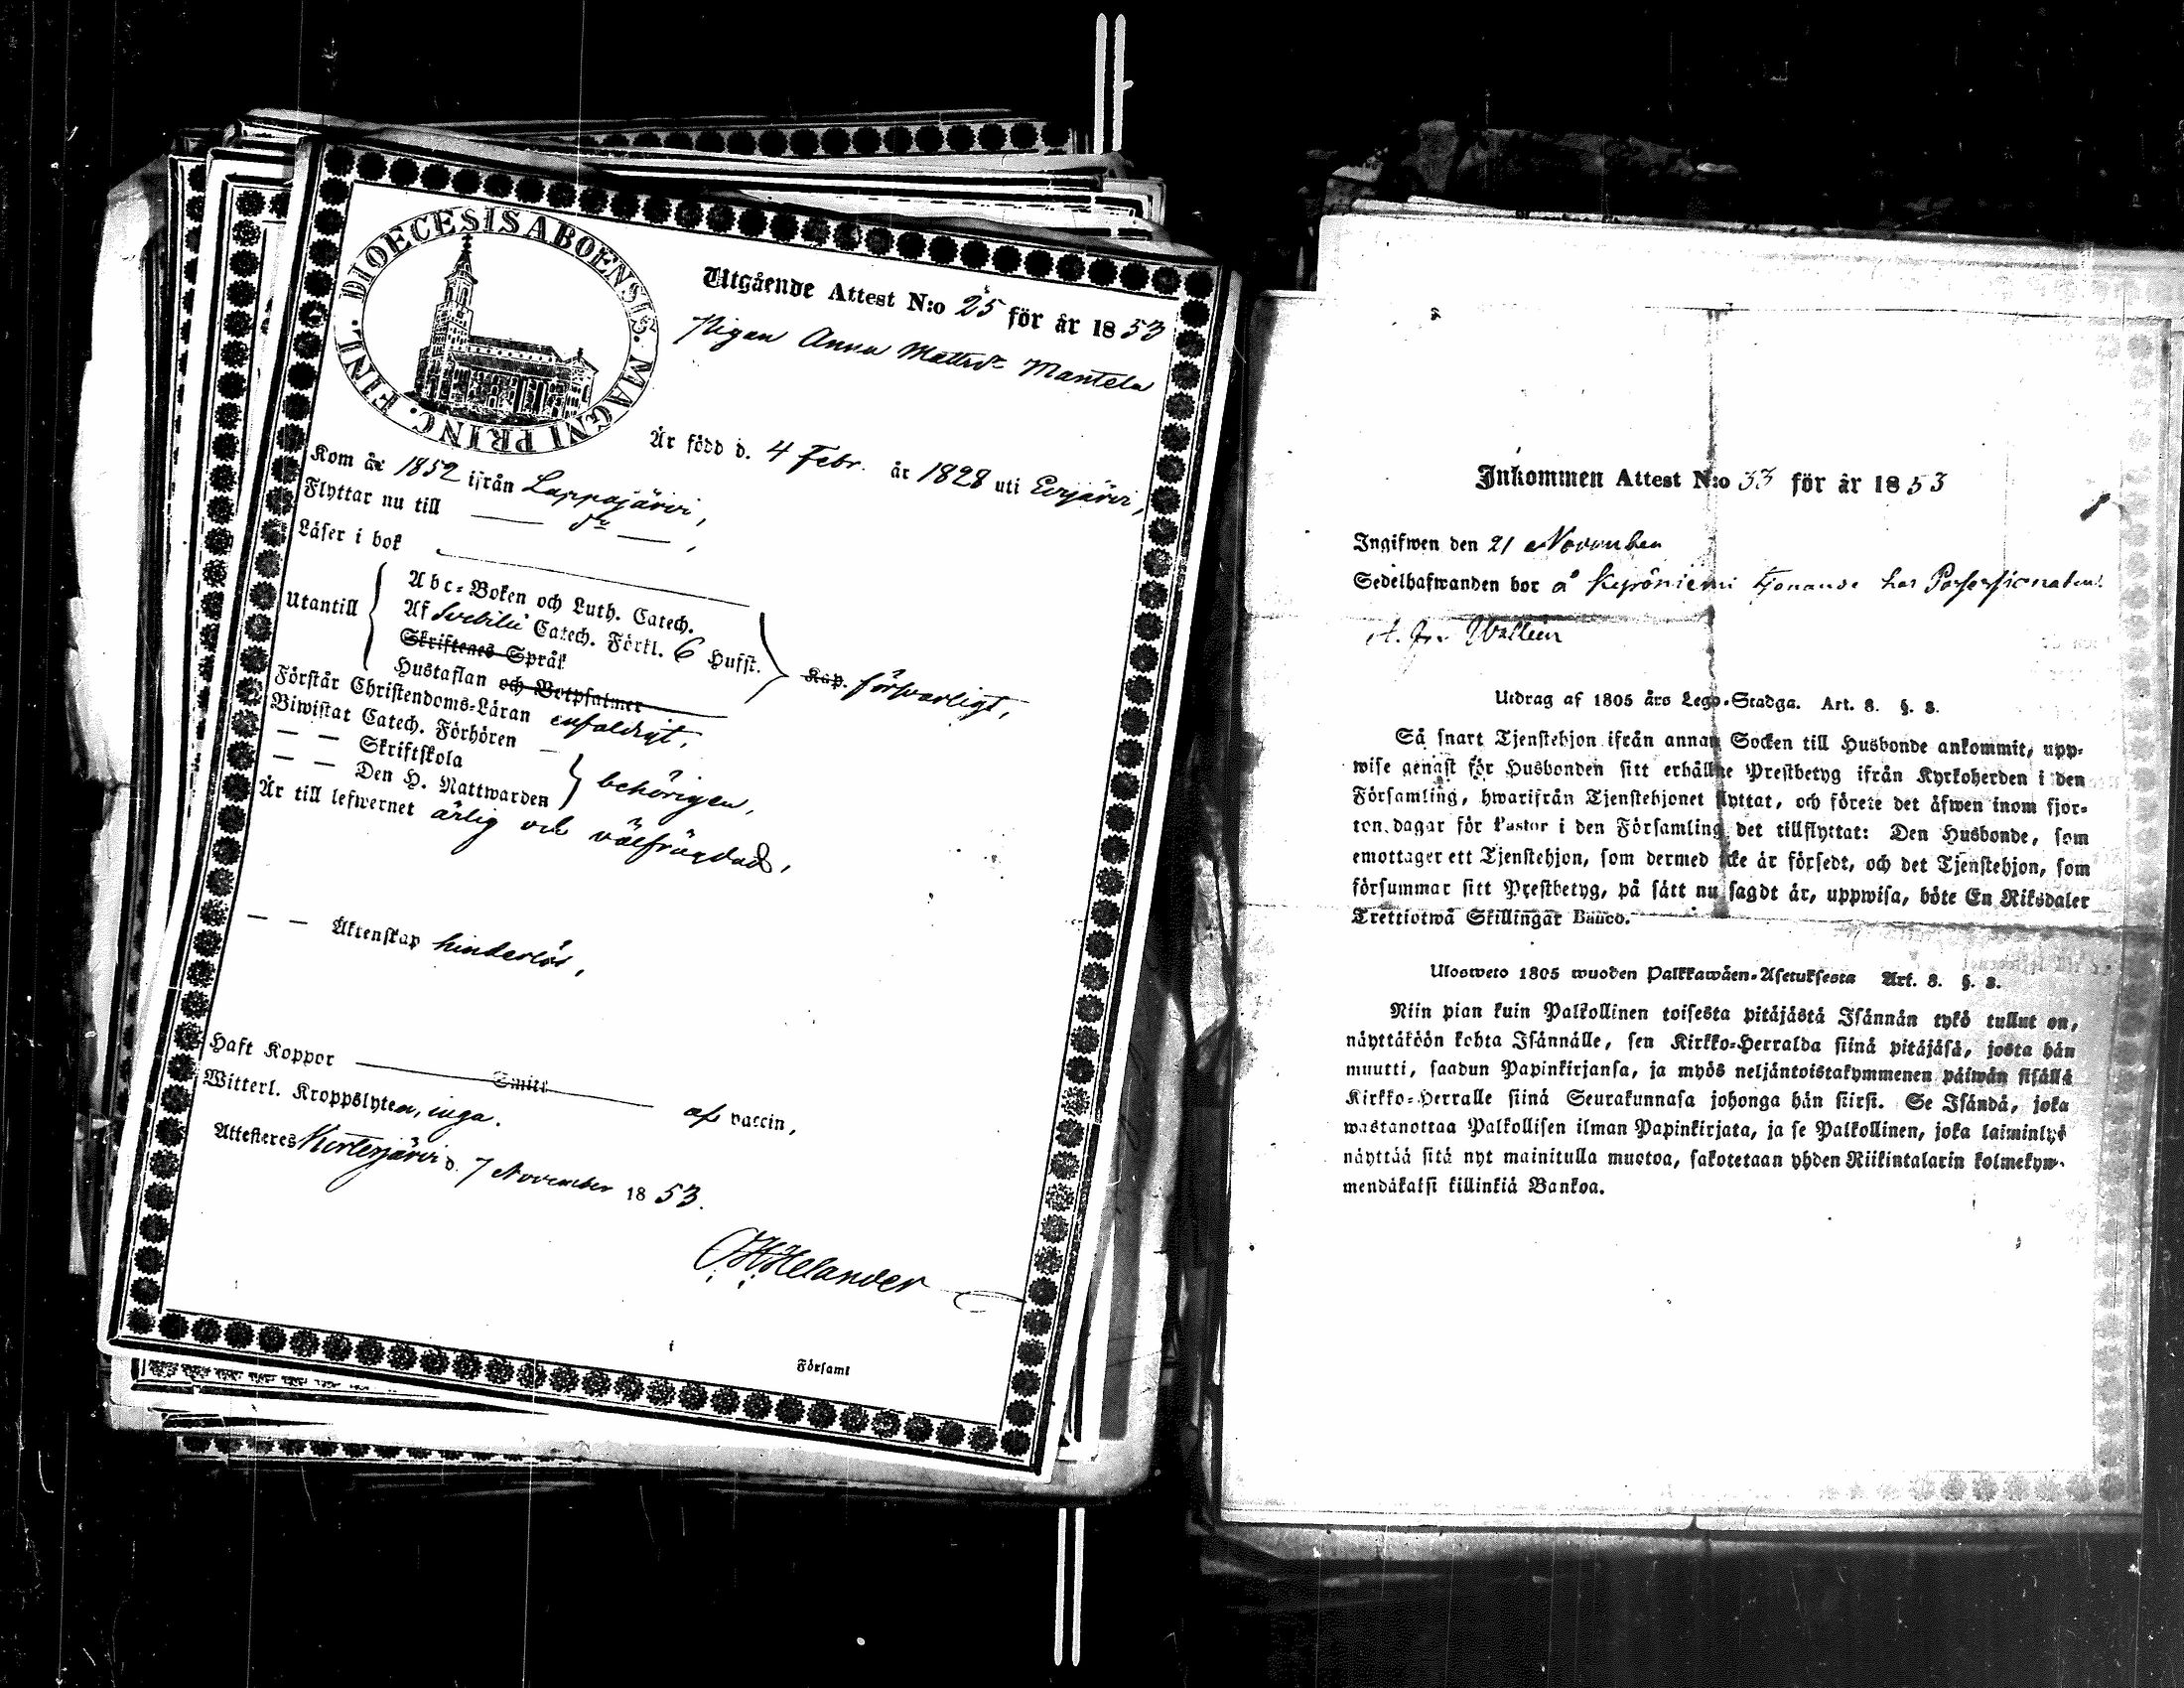 DIOECESIS ABOENSIS. MAGNI PRINC. FINL.
Utgående Attest N:o 25 för år 1853
Pigan Anna Mattsdr Mantela
Är född d. 4 Febr. år 1828 uti Evijärvi,
Kom år 1852 ifrån Lappajärvi,
Flyttar nu till — do — ,
Läser i bok
Utantill
Abc-Boken och Luth. Catech.
Af Svebilii Catech. Förkl. 6 Hufst.
Skriftenes Språk
Hustaflan och Botpsalmer
Kap. försvarligt,
Förstår Christendoms-Läran enfaldigt,
Biwistat Catech. Förhören —
— — Skriftskola
— — Den H. Nattwarden
behörigen,
Är till lefwernet ärlig och välfräjdad,
— — Äktenskap hinderlös,
Haft Koppor Smitt af vaccin,
Witterl. Kroppslyten, inga.
Attesteres Kortesjärvi d. 7 November 1853.
Helander
Församl
Inkommen Attest N:o 33 för år 1853
Ingifwen den 21 November
Sedelhafwanden bor å Kyröniemi tjenande hos
Wallin
Utdrag af 1805 års Lego-Stadga. Art. 8. §. 8.
Så snart Tjenstehjon ifrån annan Socken till Husbonde ankommit, upp-
wise genast för Husbonden sitt erhållne Prestbetyg ifrån Kyrkoherden i den
Församling, hwarifrån Tjenstehjonet flyttat, och förete det äfwen inom fjor-
ton dagar för Pastor i den Församling det tillflyttat: Den Husbonde, som
emottager ett Tjenstehjon, som dermed icke är försedt, och det Tjenstehjon, som
försummar sitt Prestbetyg, på sätt nu sagdt är, uppwisa, böte En Riksdaler
Trettiotwå Skillingar Banco.
Ulosweto 1805 wuoden Palkkawäen-Asetuksesta Art. 8. §. 8.
Niin pian kuin Palkollinen toisesta pitäjästä Isännän tykö tullut on,
näyttäköön kohta Isännälle, sen Kirkko-Herralda siinä pitäjäsä, josta hän
muutti, saadun Papinkirjansa, ja myös neljäntoistakymmenen päiwän sisällä
Kirkko-Herralle siinä Seurakunnasa johonga hän siirsi. Se Isändä, joka
wastanottaa Palkollisen ilman Papinkirjata, ja se Palkollinen, joka laiminlyö
näyttää sitä nyt mainitulla muotoa, sakotetaan yhden Riikintalarin kolmekym-
mendäkaksi killinkiä Bankoa.